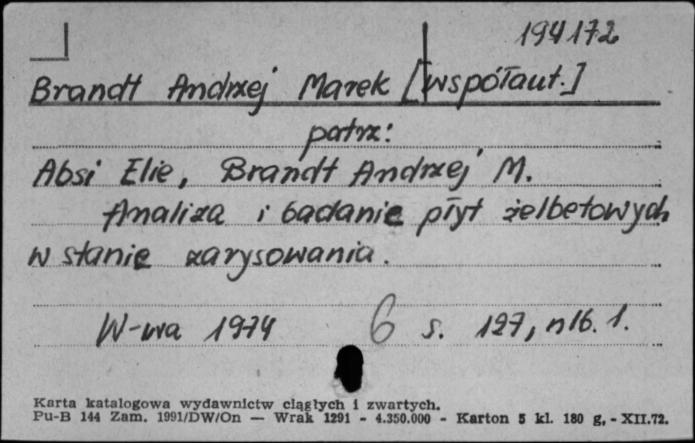 194172
Brandt Andrzej Marek [współaut.]
patrz:
Absi Elie, Brandt Andrzej M.
Analiza i badanie płyt żelbetowych
w stanie zarysowania.
W-wa 1974 6 s. 127, nlb. 1.
Karta katalogowa wydawnictw ciągłych i zwartych.
Pu-B 144 Zam. 1991/DW/On — Wrak 1291 - 4.350.000 - Karton 5 kl. 180 g. - XII.72.